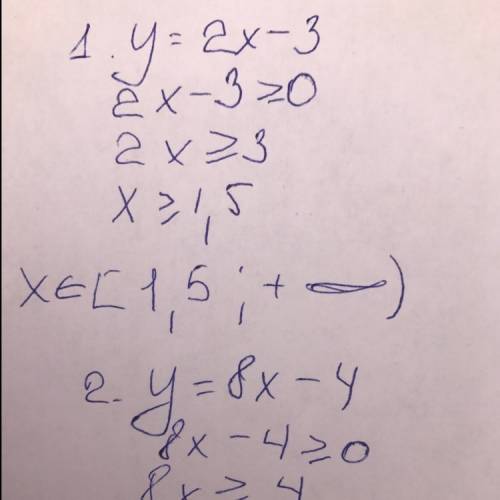 1. y = 2x - 3
2x - 3 ≥ 0
2x ≥ 3
x ≥ 1,5
x ∈ [1,5 ; + ∞)
2. y = 8x - 4
8x - 4 ≥ 0
8x ≥ 4